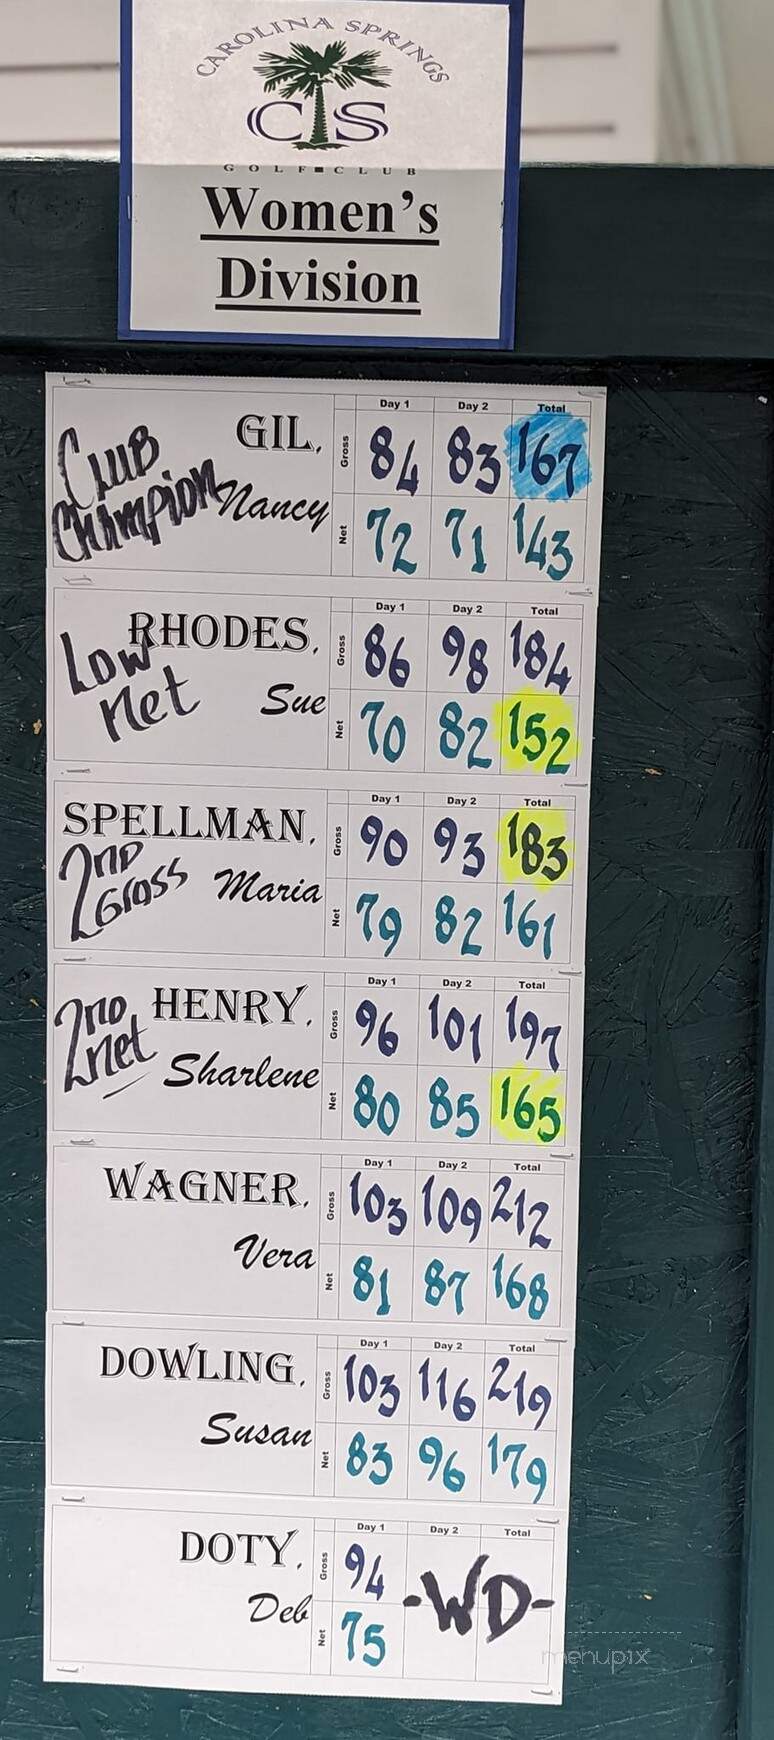 CAROLINA SPRINGS
CS
GOLF CLUB
Women's
Division
Day 1 Day 2 Total
CLUB Champion GIL, Nancy
Gross 84 83 167
Net 72 71 143
Day 1 Day 2 Total
Low net RHODES, Sue
Gross 86 98 184
Net 70 82 152
Day 1 Day 2 Total
SPELLMAN, Maria 2ND GROSS
Gross 90 93 183
Net 79 82 161
Day 1 Day 2 Total
2ND net HENRY, Sharlene
Gross 96 101 197
Net 80 85 165
Day 1 Day 2 Total
WAGNER, Vera
Gross 103 109 212
Net 81 87 168
Day 1 Day 2 Total
DOWLING, Susan
Gross 103 116 219
Net 83 96 179
Day 1 Day 2 Total
DOTY, Deb
Gross 94 -WD-
Net 75
menupix